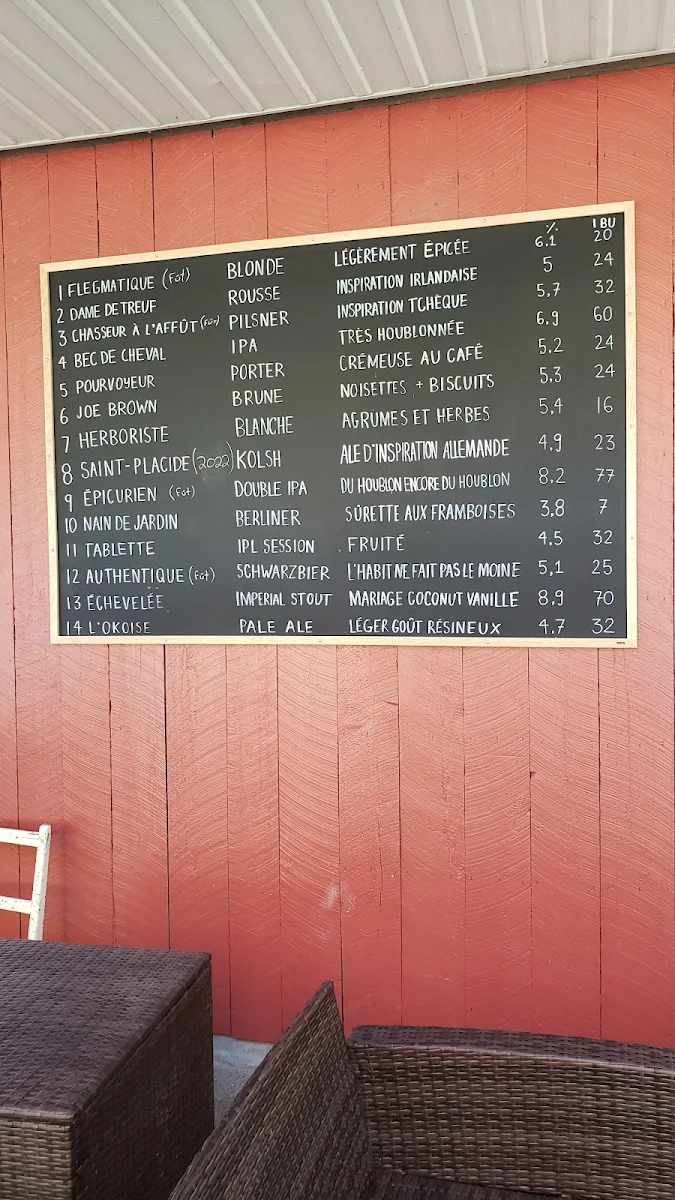 % IBU
1 FLEGMATIQUE (Fût) BLONDE LÉGÈREMENT ÉPICÉE 6.1 20
2 DAME DE TREUF ROUSSE INSPIRATION IRLANDAISE 5 24
3 CHASSEUR À L'AFFÛT (Fût) PILSNER INSPIRATION TCHÈQUE 5,7 32
4 BEC DE CHEVAL IPA TRÈS HOUBLONNÉE 6,9 60
5 POURVOYEUR PORTER CRÉMEUSE AU CAFÉ 5,2 24
6 JOE BROWN BRUNE NOISETTES + BISCUITS 5,3 24
7 HERBORISTE BLANCHE AGRUMES ET HERBES 5,4 16
8 SAINT-PLACIDE (2022) KOLSH ALE D'INSPIRATION ALLEMANDE 4,9 23
9 ÉPICURIEN (Fût) DOUBLE IPA DU HOUBLON ENCORE DU HOUBLON 8,2 77
10 NAIN DE JARDIN BERLINER SÛRETTE AUX FRAMBOISES 3.8 7
11 TABLETTE IPL SESSION FRUITÉ 4.5 32
12 AUTHENTIQUE (Fût) SCHWARZBIER L'HABIT NE FAIT PAS LE MOINE 5,1 25
13 ÉCHEVELÉE IMPERIAL STOUT MARIAGE COCONUT VANILLE 8,9 70
14 L'OKOISE PALE ALE LÉGER GOÛT RÉSINEUX 4,7 32